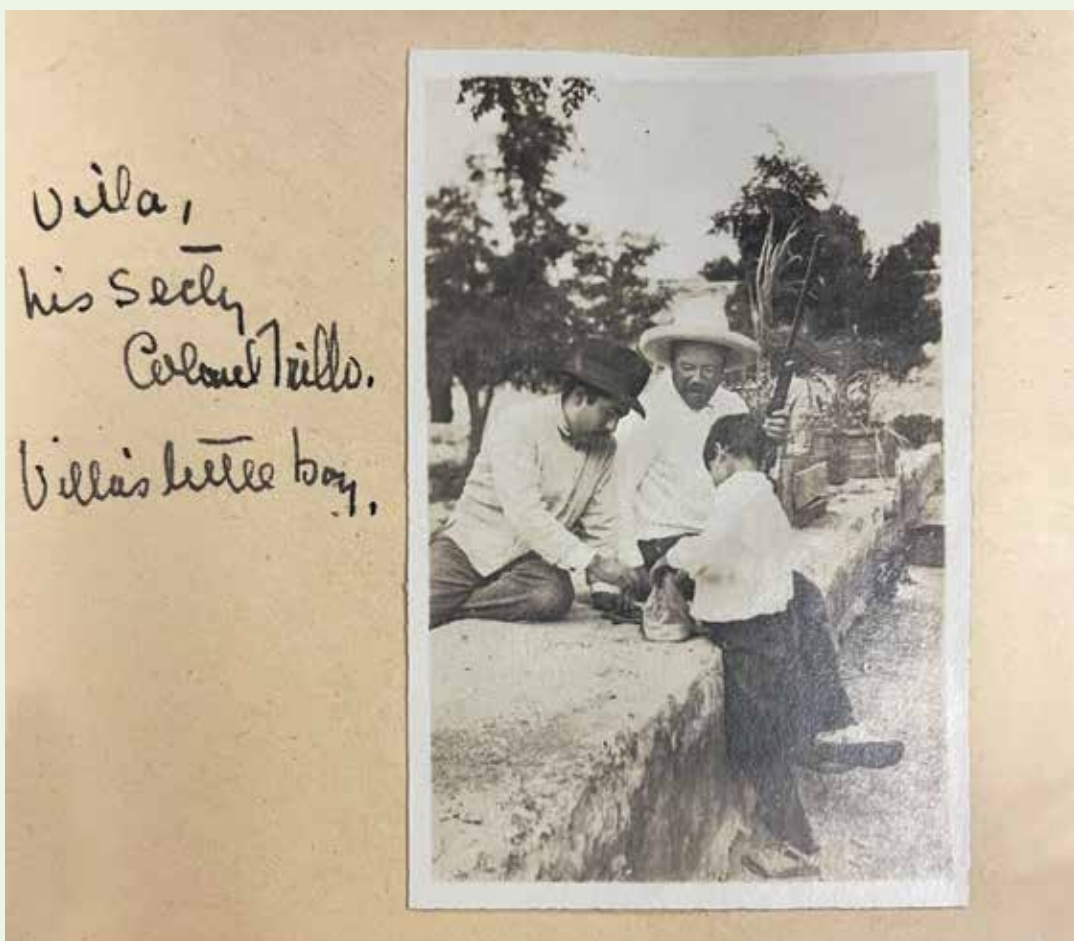 Villa,
his Secty
Colonel Trillo.
Villa's little boy.